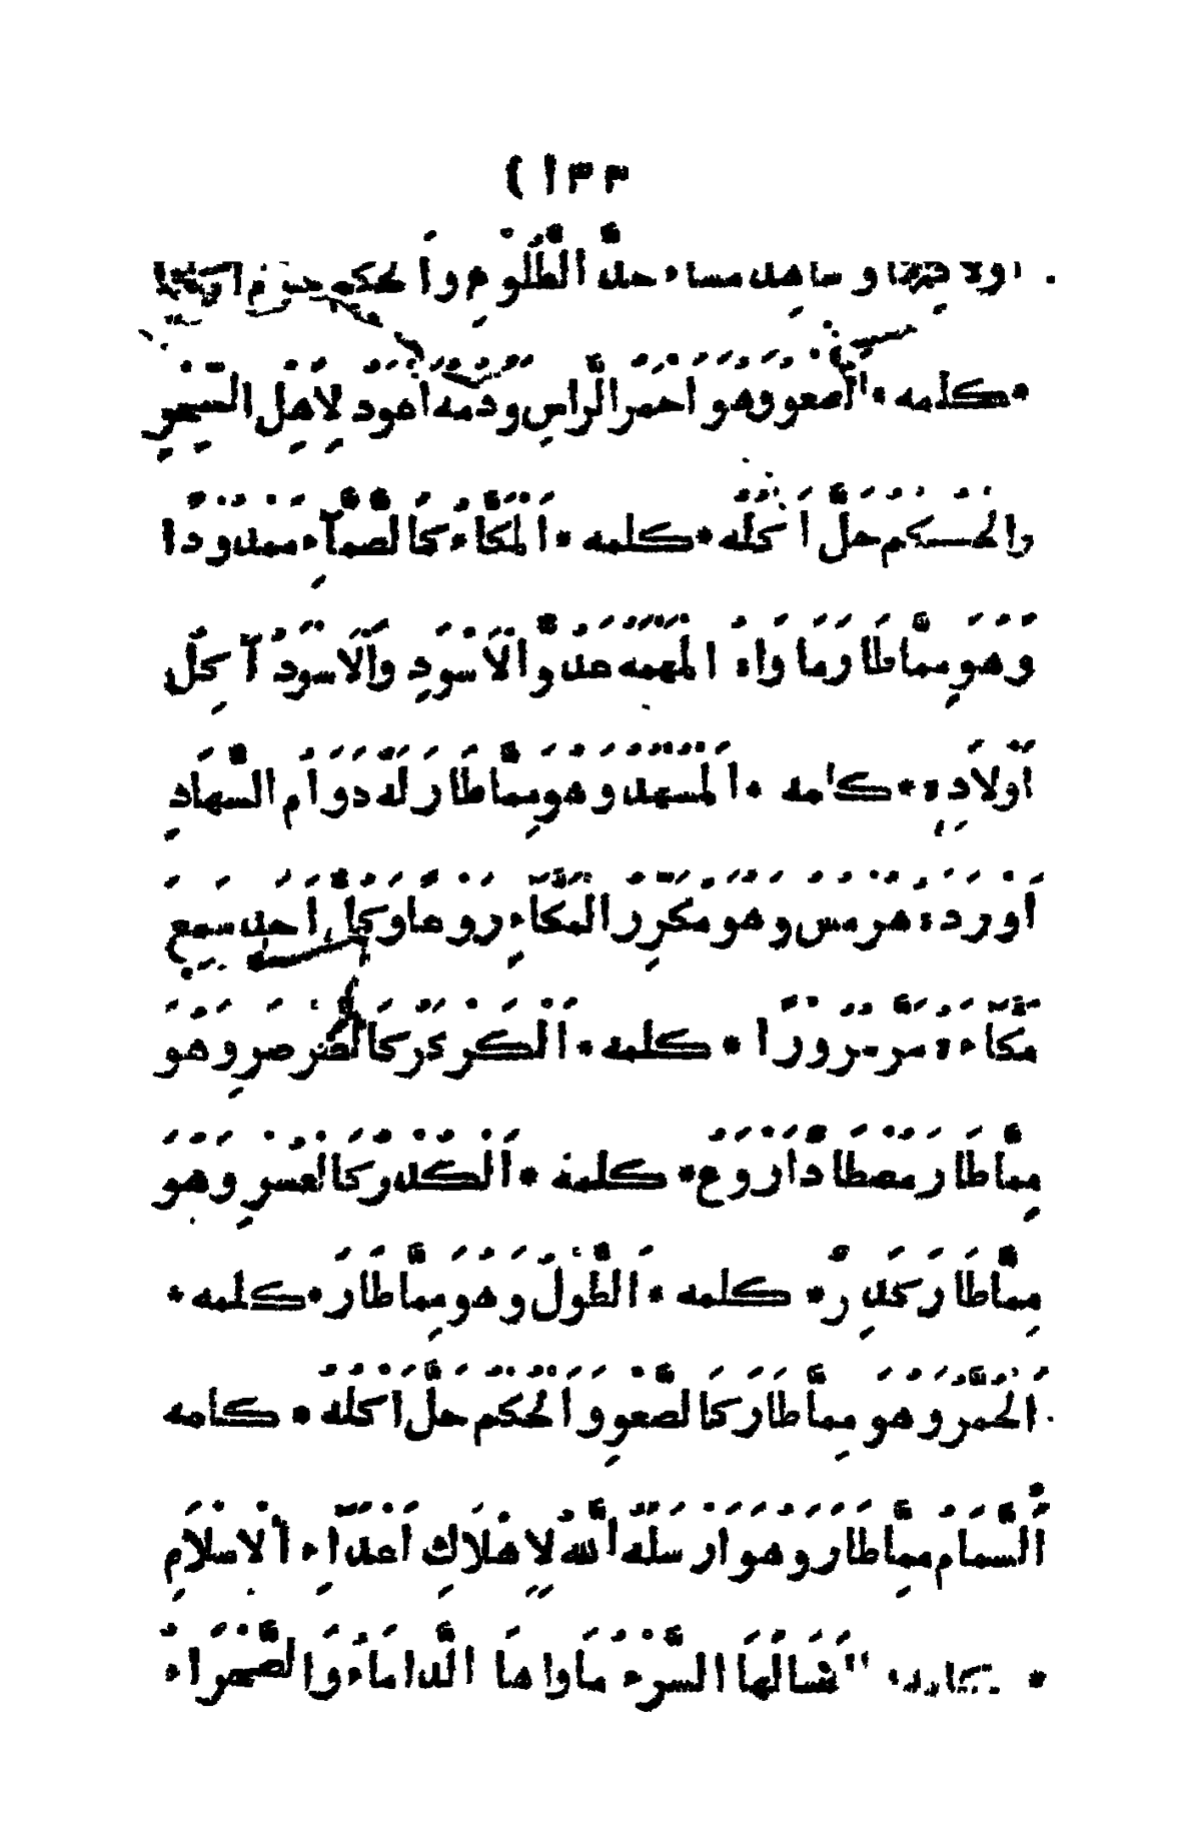 ١٣٣
وما هد مساء حل الطلوم والحكم
* كلمه * الصعو وهو احمر الراس ودمه اهود لاهل السحر
والحكم حل اكله * كلمه * المكاء كالصماء ممدودا
وهو مما طار ماواه المهمه عدو الاسود والاسود آكل
اولاده * كلمه * المسهد وهو مما طار له دوام السهاد
اورده هرمس وهو مكرر المكاء روعا وكل احد سمع
مكاءه سر مرورا * كلمه * الكركر كالصرصر وهو
مما طار مصطادا روع * كلمه * الكدر كالعسر وهو
مما طار كدر * كلمه * الطول وهو مما طار * كلمه *
الحمر وهو مما طار كالصعو والحكم حل اكله * كلمه
السمام مما طار وهو ارسله الله لاهلاك اعداء الاسلام
* السرء ماواها الداماء والصحراء